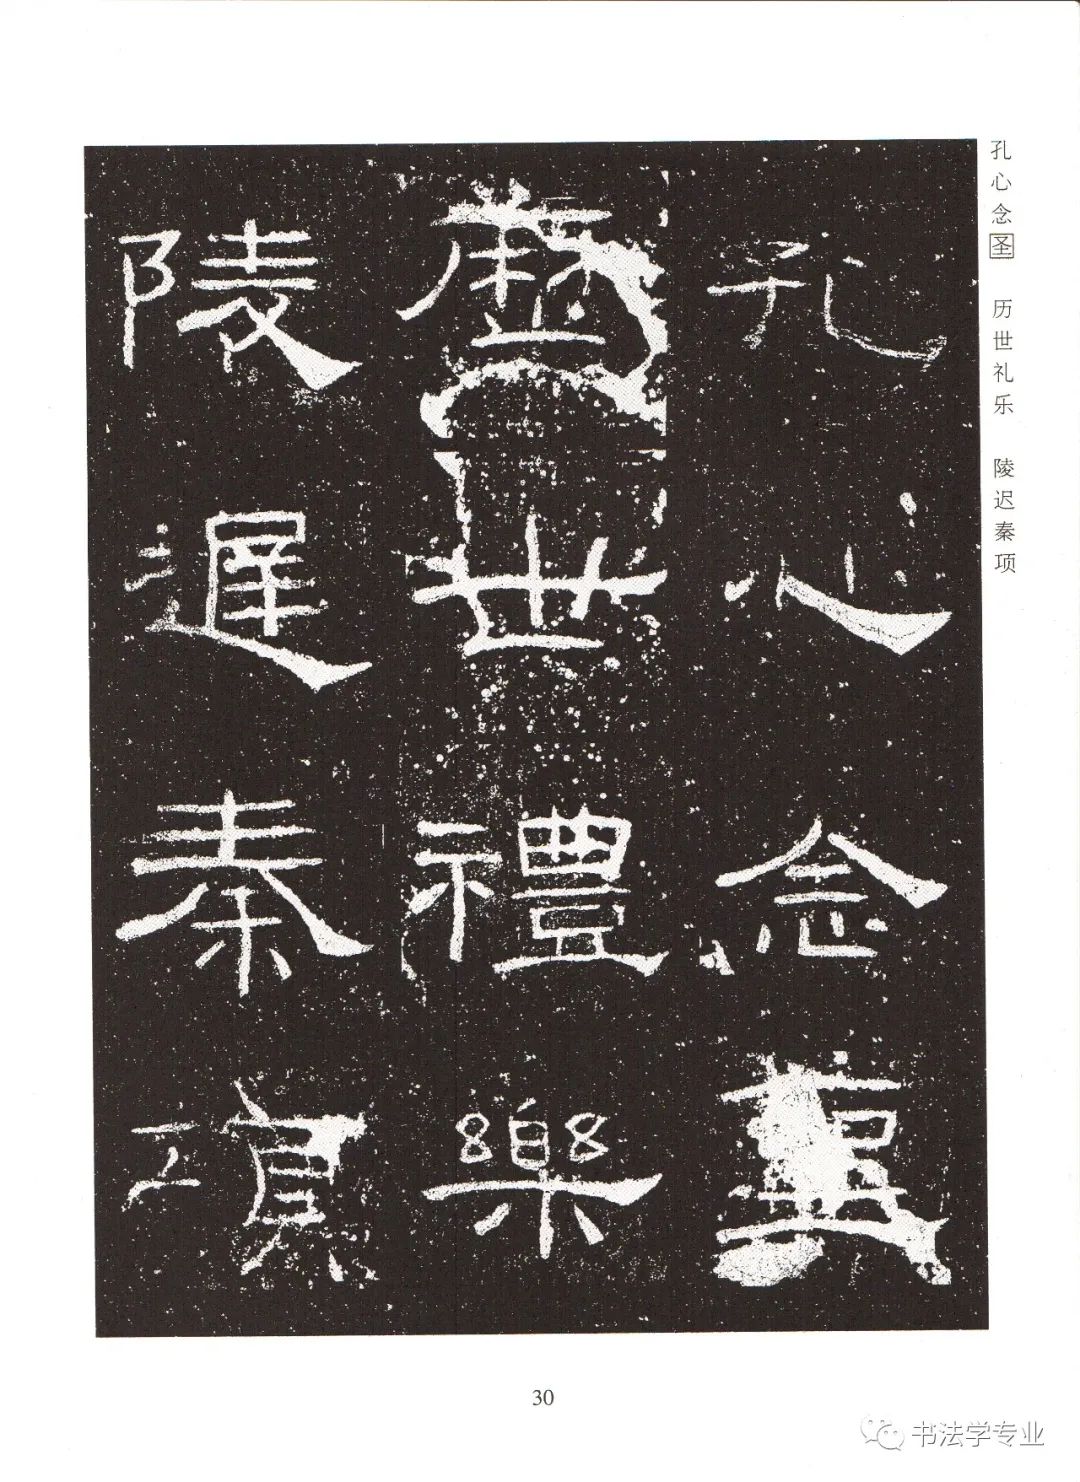 孔心念圣 历世礼乐 陵迟秦项
孔心念
歷世禮樂
陵遲秦項
30
书法学专业